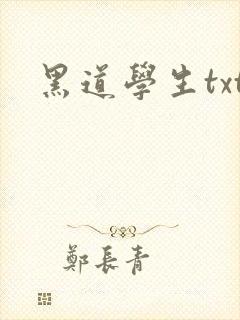 黑道學生txt
鄭長青